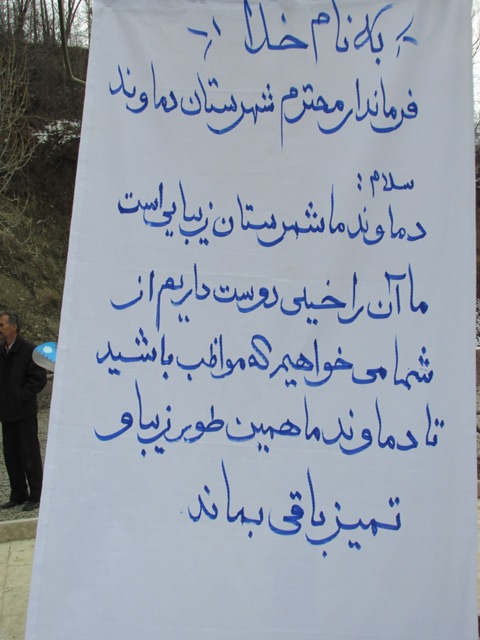 به نام خدا
فرماندار محترم شهرستان دماوند
سلام :
دماوند ما شهرستان زیبایی است
ما آن را خیلی دوست داریم از
شما می خواهیم که مواظب باشید
تا دماوند ما همین طور زیبا و
تمیز باقی بماند.